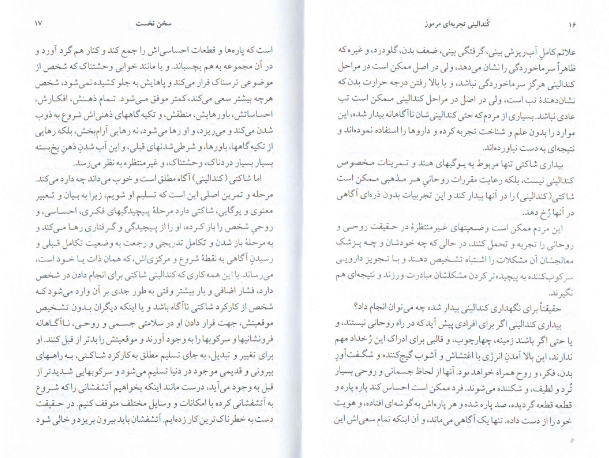 ۱۶
کُندالینی تجربه‌ای مرموز
علائم کامل آب‌ریزش بینی، گرفتگی بینی، ضعف بدن، گلودرد، و غیره که
ظاهراً سرماخوردگی را نشان می‌دهد، ولی در اصل ممکن است در مراحل
کندالینی هرگز سرماخوردگی نباشد، و یا بالا رفتن درجه حرارت بدن که
نشان‌دهندهٔ تب است، ولی در اصل در مراحل کندالینی ممکن است تب
عادی نباشد. بسیاری از مردم که حتی کندالینی‌شان ناآگاهانه بیدار شده، این
موارد را بدون علم و شناخت تجربه کرده و داروها را استفاده نموده‌اند و
نتیجه‌ای به دست نیاورده‌اند.
بیداری شاکتی تنها مربوط به یوگیهای هند و تمرینات مخصوص
کندالینی نیست، بلکه رعایت مقررات روحانیِ هر مذهبی ممکن است
شاکتی (کندالینی) را در آنها بیدار کند و این تجربیات بدون ذره‌ای آگاهی
در آنها رُخ دهد.
این مردم ممکن است وضعیتهای غیرمنتظره در حقیقت روحی و
روحانی را تجربه و تحمل کنند، در حالی که چه خودشان و چه پزشک
معالجشان آن مشکلات را اشتباه تشخیص دهند و با تجویز دارویی
سرکوب‌کننده به پیچیده‌تر کردن مشکلشان مبادرت ورزند و نتیجه‌ای هم
نگیرند.
حقیقتاً برای نگهداری کندالینی بیدار شده چه می‌توان انجام داد؟
بیداری کندالینی اگر برای افرادی پیش آید که در راه روحانی نیستند، و
یا حتی اگر باشند زمینه، چهارچوب، و قالبی برای ادراک این رُخداد مهم
ندارند، این بالا آمدن انرژی با اغتشاش و آشوب گیج‌کننده، و شگفت‌آور
بدن، فکر، و روح همراه خواهد بود. آنها از لحاظ جسمانی و روحی بسیار
تُرد و لطیف، و شکننده می‌شوند. فرد ممکن است احساس کند پاره پاره و
قطعه قطعه گردیده، صد پاره شده و هر پاره‌اش به گوشه‌ای افتاده، و هویت
خود را از دست داده. تنها یک آگاهی می‌ماند، و آن اینکه تمام سعی‌اش این
سخن نخست
۱۷
است که پاره‌ها و قطعات احساسی‌اش را جمع کند و کنار هم گرد آورد و
در آن مجموعه به هم بچسباند. و یا مانند خوابی وحشتناک که شخص از
موضوعی ترسناک قرار می‌کند و پاهایش به جلو کشیده نمی‌شود، شخص
هرچه بیشتر سعی می‌کند، کمتر موفق می‌شود. تمام ذهنش، افکارش،
احساساتش، باورهایش، منطقش، و تکیه گاههای ذهنی‌اش شروع به ذوب
شدن می‌کند و می‌ریزد، و او رها می‌شود، نه رهایی آرام‌بخش، بلکه رهایی
از تکیه گاهها، باورها، و شرطی‌شدنهای قبلی، و این آب شدنِ ذهنِ یخ‌بسته
بسیار بسیار دردناک، وحشتناک، و غیرمنتظره به نظر می‌رسد.
اما شاکتی (کندالینی) آگاه مطلق است و خوب می‌داند چه دارد می‌کند.
مرحله و تمرین اصلی این است که تسلیم او شویم، زیرا به بیان و تعبیر
معنوی و یوگایی، شاکتی دارد مرحلهٔ پیچیدگیهای فکری، احساسی، و
روحیِ شخص را باز کرده، او را از پیچیدگی و گرفتاری رها می‌کند و
به مرحلهٔ باز شدن و تکامل تدریجی و رجعت به وضعیت تکامل قبلی و
رسیدنِ آگاهی به نقطهٔ شروع و مرکزی‌اش، که همان ذات یا خود است،
می‌رساند. با این همه کاری که کندالینی شاکتی برای انجام دادن در شخص
دارد، فشار اضافی و بار بیشتر وقتی به طور جدی بر آن وارد می‌شود که
شخص از کارکرد شاکتی ناآگاه باشد و یا اینکه دیگران بدون تشخیص
موقعیتش، جهت قرار دادن او در سلامتی جسمی و روحی، ناآگاهانه
فرونشانیها و سرکوبها را به وجود آورند و موقعیتش را بدتر از قبل کنند. او
برای تغییر و تبدیل، به جای تسلیم مطلق به کارکرد شاکتی، به راههای
بیرونی و قدیمی موجود در دنیا تسلیم می‌شود و سرکوبهایی شدیدتر از
قبل به وجود می‌آید، درست مانند اینکه بخواهیم آتشفشانی را که شروع
به آتشفشانی کرده با امکانات و وسایل مختلف متوقف کنیم. در حقیقت
دست به خطرناک‌ترین کار زده‌ایم. آتشفشان باید بیرون بریزد و خالی شود